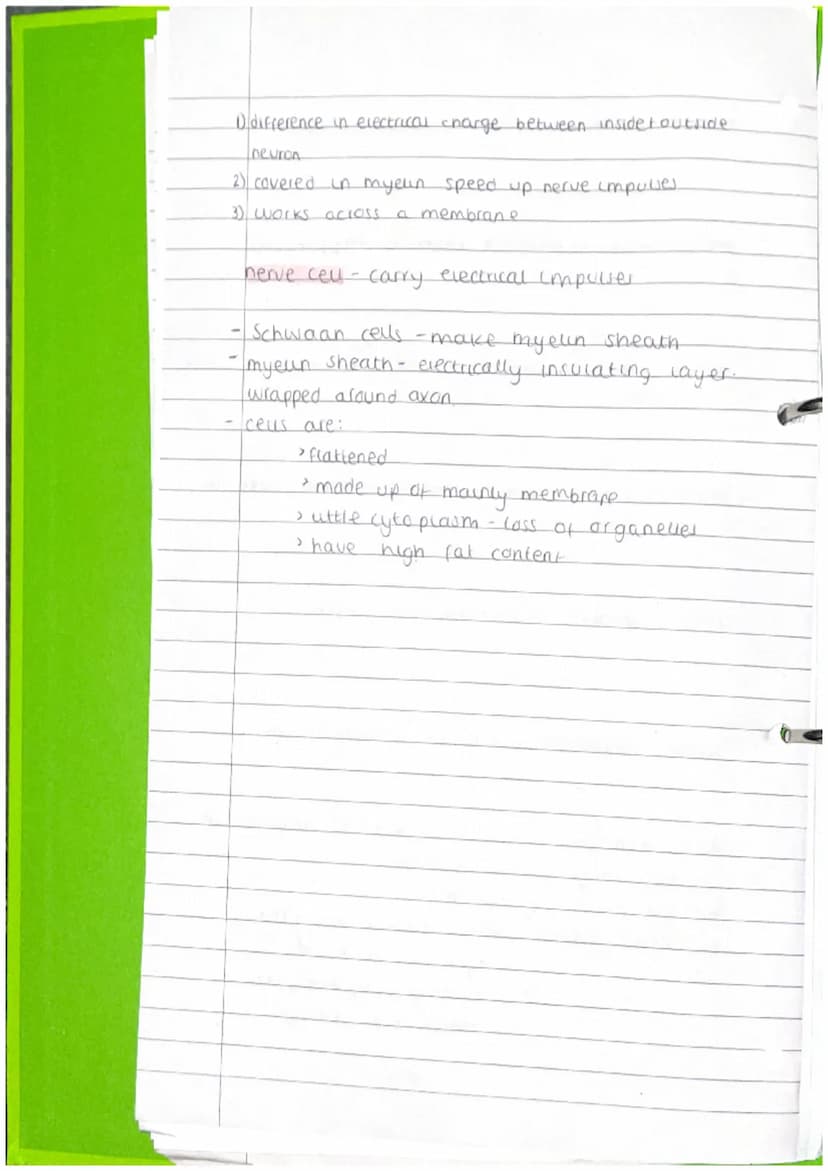 1) difference in electrical charge between inside + outside
neuron
2) covered in myelin speed up nerve impulses
3) works across a membrane
nerve cell - carry electrical impulses
- Schwaan cells - make myelin sheath
- myelin sheath - electrically insulating layer.
wrapped around axon
- cells are:
> flattened
> made up of mainly membrane
> little cytoplasm - loss of organelles
> have high fat content